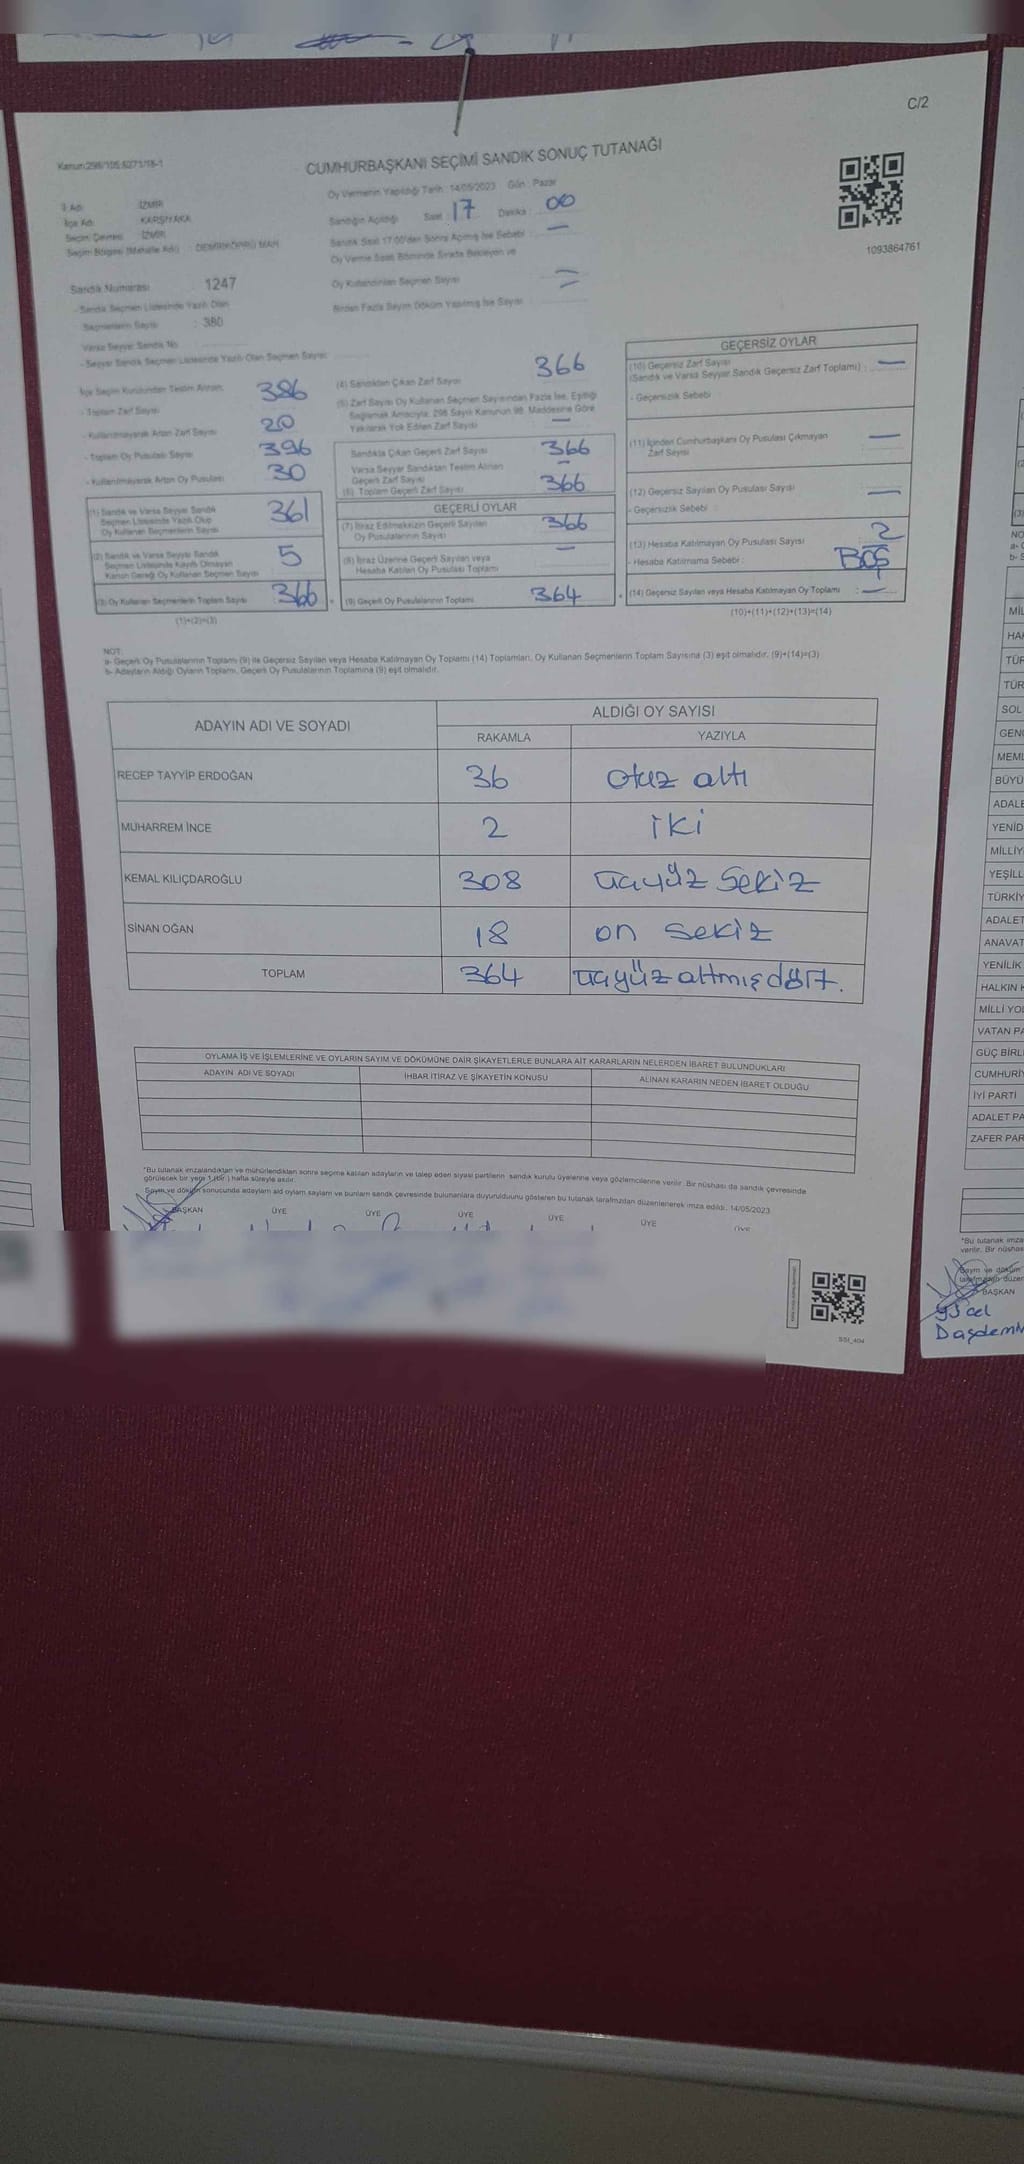 C/2
Kanun:298/105,6271/18-1
CUMHURBAŞKANI SEÇİMİ SANDIK SONUÇ TUTANAĞI
Oy Vermenin Yapıldığı Tarih : 14/05/2023 Gün : Pazar
İl Adı : İZMİR
İlçe Adı : KARŞIYAKA
Seçim Çevresi : İZMİR
Seçim Bölgesi (Mahalle Adı) : DEMİRKÖPRÜ MAH.
Sandığın Açıldığı Saat : 17 Dakika : 00
Sandık Saat 17:00'den Sonra Açılmış İse Sebebi : —
Oy Verme Saati Bitiminde Sırada Bekleyen ve
Oy Kullandırılan Seçmen Sayısı
Birden Fazla Sayım Döküm Yapılmış İse Sayısı :
1093864761
Sandık Numarası : 1247
- Sandık Seçmen Listesinde Yazılı Olan
Seçmenlerin Sayısı : 380
Varsa Seyyar Sandık No
- Seyyar Sandık Seçmen Listesinde Yazılı Olan Seçmen Sayısı
İlçe Seçim Kurulundan Teslim Alınan
- Toplam Zarf Sayısı 386
- Kullanılmayarak Artan Zarf Sayısı 20
- Toplam Oy Pusulası Sayısı 396
- Kullanılmayarak Artan Oy Pusulası 30
(1) Sandık ve Varsa Seyyar Sandık
Seçmen Listesinde Yazılı Olup
Oy Kullanan Seçmenlerin Sayısı 361
(2) Sandık ve Varsa Seyyar Sandık
Seçmen Listesinde Kayıtlı Olmayan
Kanun Gereği Oy Kullanan Seçmen Sayısı 5
(3) Oy Kullanan Seçmenlerin Toplam Sayısı 366
(1)+(2)=(3)
(4) Sandıktan Çıkan Zarf Sayısı 366
(5) Zarf Sayısı Oy Kullanan Seçmen Sayısından Fazla İse, Eşitliği
Sağlamak Amacıyla, 298 Sayılı Kanunun 98. Maddesine Göre
Yakılarak Yok Edilen Zarf Sayısı —
Sandıkta Çıkan Geçerli Zarf Sayısı 366
Varsa Seyyar Sandıktan Teslim Alınan
Geçerli Zarf Sayısı —
(6) Toplam Geçerli Zarf Sayısı 366
GEÇERLİ OYLAR
(7) İtiraz Edilmeksizin Geçerli Sayılan
Oy Pusulalarının Sayısı 366
(8) İtiraz Üzerine Geçerli Sayılan veya
Hesaba Katılan Oy Pusulası Toplamı —
(9) Geçerli Oy Pusulalarının Toplamı 364
GEÇERSİZ OYLAR
(10) Geçersiz Zarf Sayısı
(Sandık ve Varsa Seyyar Sandık Geçersiz Zarf Toplamı) : —
- Geçersizlik Sebebi
(11) İçinden Cumhurbaşkanı Oy Pusulası Çıkmayan
Zarf Sayısı —
(12) Geçersiz Sayılan Oy Pusulası Sayısı —
- Geçersizlik Sebebi :
(13) Hesaba Katılmayan Oy Pusulası Sayısı 2
- Hesaba Katılmama Sebebi : BOŞ
(14) Geçersiz Sayılan veya Hesaba Katılmayan Oy Toplamı : —
(10)+(11)+(12)+(13)=(14)
NOT:
a- Geçerli Oy Pusulalarının Toplamı (9) ile Geçersiz Sayılan veya Hesaba Katılmayan Oy Toplamı (14) Toplamları, Oy Kullanan Seçmenlerin Toplam Sayısına (3) eşit olmalıdır. (9)+(14)=(3)
b- Adayların Aldığı Oyların Toplamı, Geçerli Oy Pusulalarının Toplamına (9) eşit olmalıdır.
ADAYIN ADI VE SOYADI
ALDIĞI OY SAYISI
RAKAMLA YAZIYLA
RECEP TAYYİP ERDOĞAN 36 otuz altı
MUHARREM İNCE 2 iki
KEMAL KILIÇDAROĞLU 308 üçyüz sekiz
SİNAN OĞAN 18 on sekiz
TOPLAM 364 üçyüz altmışdört.
OYLAMA İŞ VE İŞLEMLERİNE VE OYLARIN SAYIM VE DÖKÜMÜNE DAİR ŞİKAYETLERLE BUNLARA AİT KARARLARIN NELERDEN İBARET BULUNDUKLARI
ADAYIN ADI VE SOYADI İHBAR İTİRAZ VE ŞİKAYETİN KONUSU ALINAN KARARIN NEDEN İBARET OLDUĞU
*Bu tutanak imzalandıktan ve mühürlendikten sonra seçime katılan adayların ve talep eden siyasi partilerin sandık kurulu üyelerine veya gözlemcilerine verilir. Bir nüshası da sandık çevresinde
görülecek bir yere 1 (bir) hafta süreyle asılır.
Sayım ve döküm sonucunda adayların aldığı oyların sayıların ve bunların sandık çevresinde bulunanlara duyurulduğunu gösteren bu tutanak tarafımızdan düzenlenerek imza edildi. 14/05/2023
BAŞKAN ÜYE ÜYE ÜYE ÜYE ÜYE ÜYE
SSI_404
MİL
HA
TÜR
TÜR
SOL
GENÇ
MEML
BÜYÜ
ADALE
YENİD
MİLLİY
YEŞİLL
TÜRKİY
ADALET
ANAVAT
YENİLİK
HALKIN K
MİLLİ YOL
VATAN PA
GÜÇ BİRLİ
CUMHURİY
İYİ PARTİ
ADALET PA
ZAFER PAR
*Bu tutanak imza
verilir. Bir nüshas
Sayım ve döküm
tarafımızdan düzen
BAŞKAN
Yücel
Daşdemir